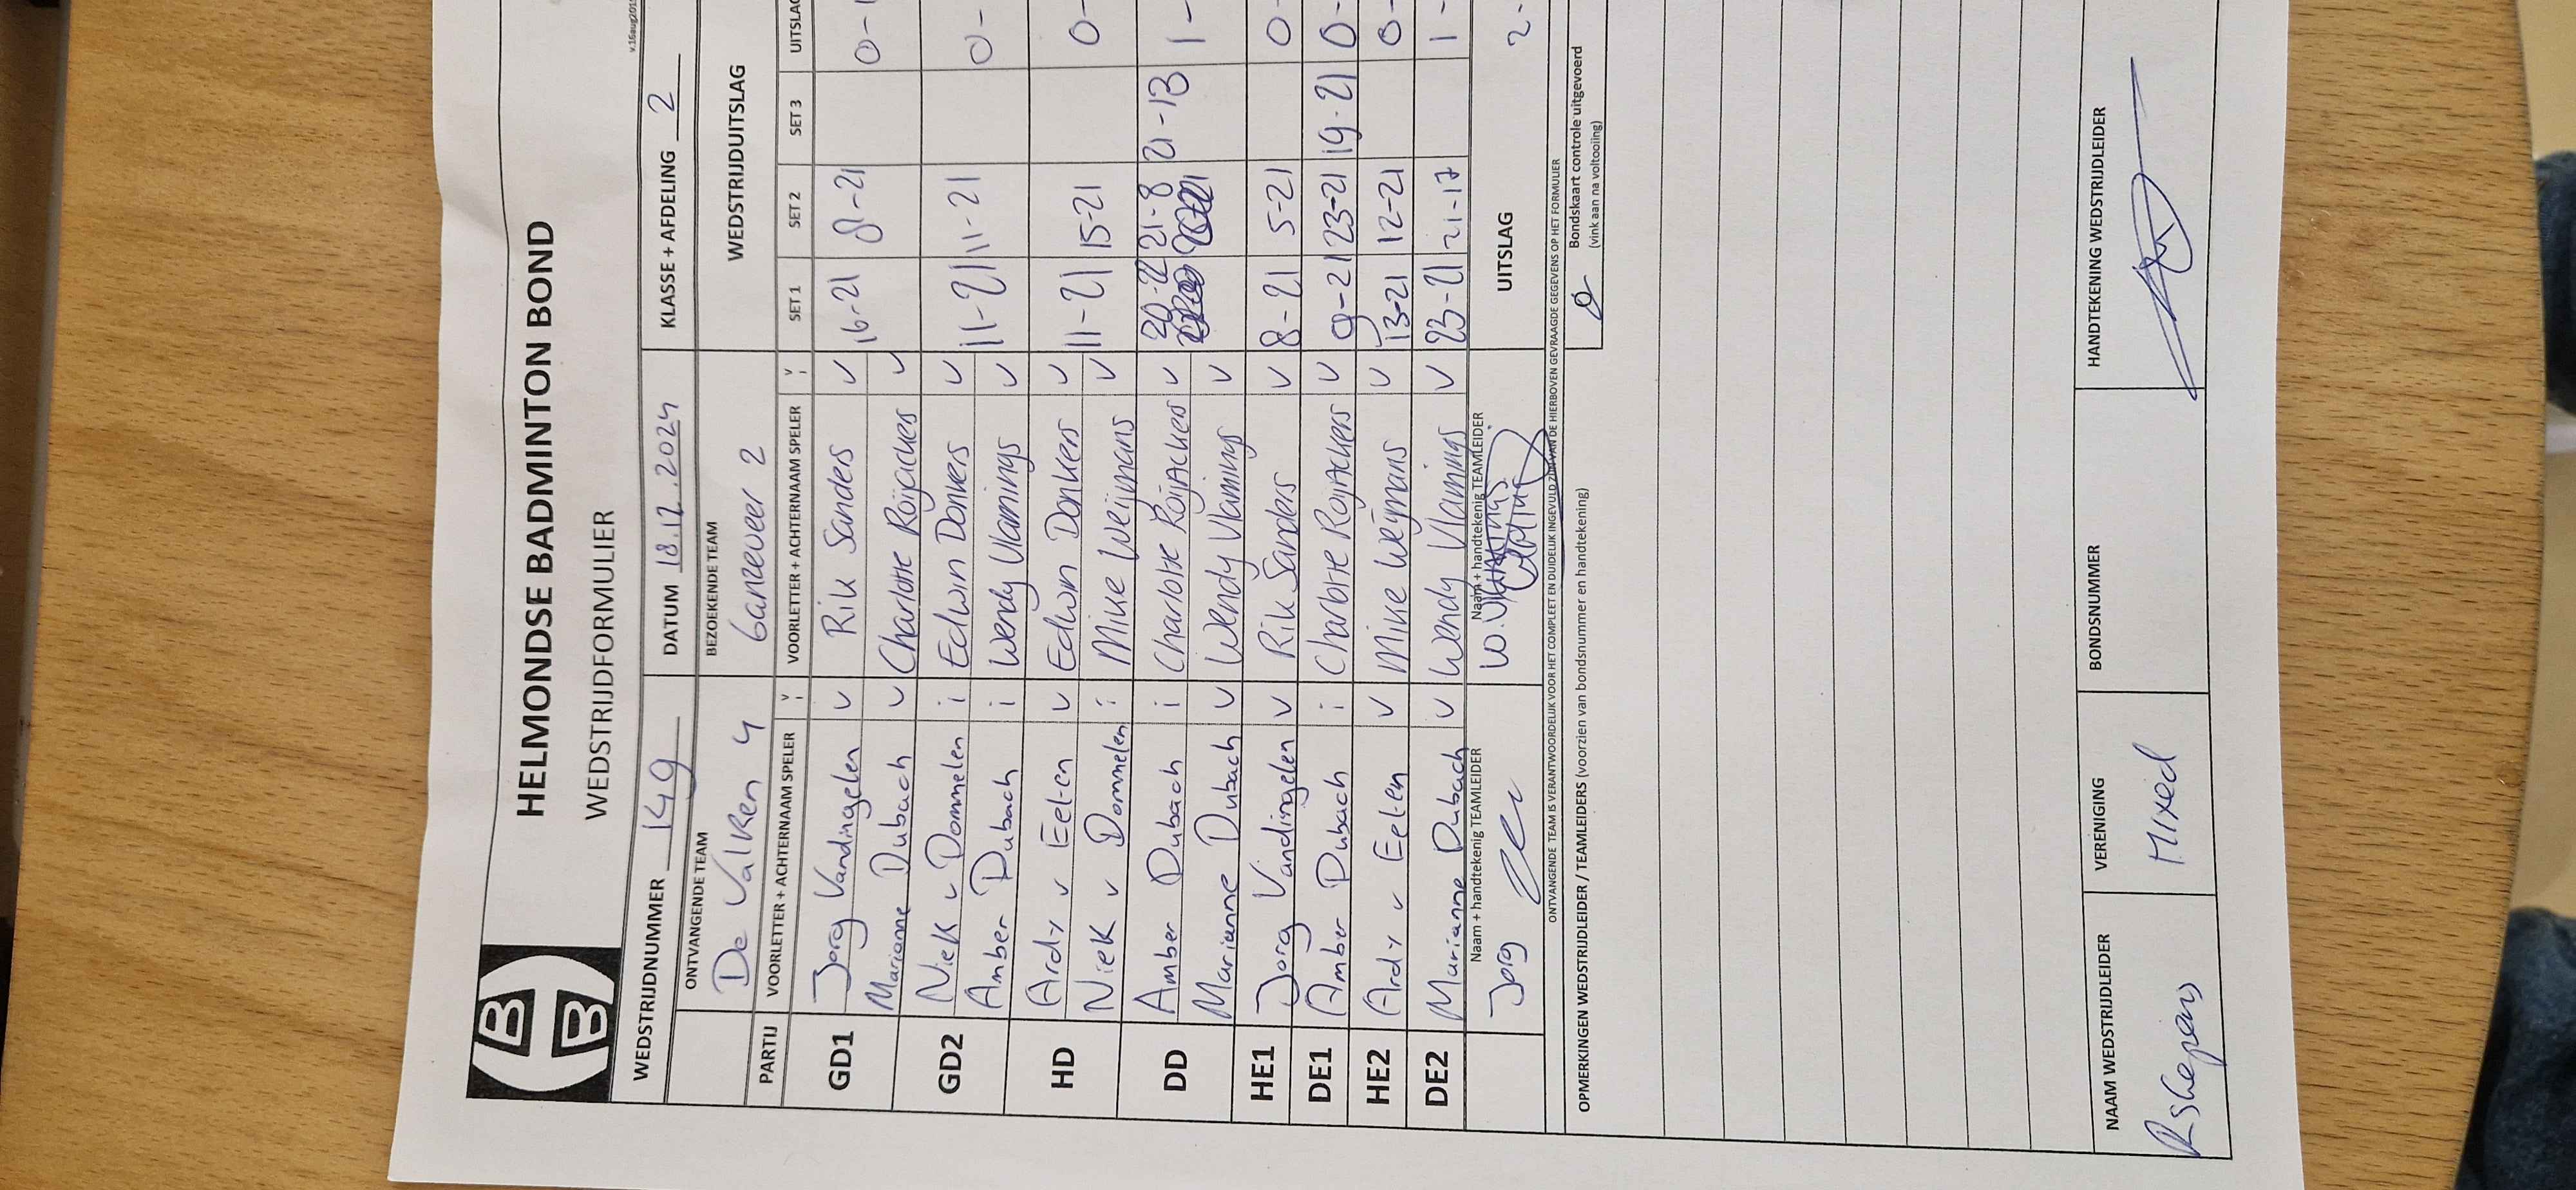 HELMONDSE BADMINTON BOND
WEDSTRIJDFORMULIER
v.16aug201
WEDSTRIJDNUMMER 149 DATUM 18.12.2024 KLASSE + AFDELING 2
ONTVANGENDE TEAM BEZOEKENDE TEAM WEDSTRIJDUITSLAG
De Valken 4 Ganzeveer 2
PARTIJ VOORLETTER + ACHTERNAAM SPELER V I VOORLETTER + ACHTERNAAM SPELER V I SET 1 SET 2 SET 3 UITSLAG
GD1 Jorg Vandingelen v Rik Sanders v 16-21 8-21 0-
Marianne Dubach v Charlotte Roijackers v
GD2 Niek v Dommelen i Edwin Donkers v 11-21 11-21 0-
Amber Dubach i Wendy Vlamings v
HD Ardy v Eelen v Edwin Donkers v 11-21 15-21 0-
Niek v Dommelen i Mike Weijmans v
DD Amber Dubach i Charlotte Roijackers v 20-22 21-8 21-13 1-
Marianne Dubach v Wendy Vlamings v
HE1 Jorg Vandingelen v Rik Sanders v 8-21 5-21 0-
DE1 Amber Dubach i Charlotte Roijackers v 9-21 23-21 19-21 0-
HE2 Ardy v Eelen v Mike Weijmans v 13-21 12-21 0-
DE2 Marianne Dubach v Wendy Vlamings v 23-21 21-17 1-
Naam + handtekenig TEAMLEIDER Naam + handtekenig TEAMLEIDER UITSLAG 2-
Jorg W. Vlamings
ONTVANGENDE TEAM IS VERANTWOORDELIJK VOOR HET COMPLEET EN DUIDELIJK INGEVULD ZIJN VAN DE HIERBOVEN GEVRAAGDE GEGEVENS OP HET FORMULIER
OPMERKINGEN WEDSTRIJDLEIDER / TEAMLEIDERS (voorzien van bondsnummer en handtekening)
Bondskaart controle uitgevoerd
(vink aan na voltooiing)
NAAM WEDSTRIJDLEIDER VERENIGING BONDSNUMMER HANDTEKENING WEDSTRIJDLEIDER
Mixed